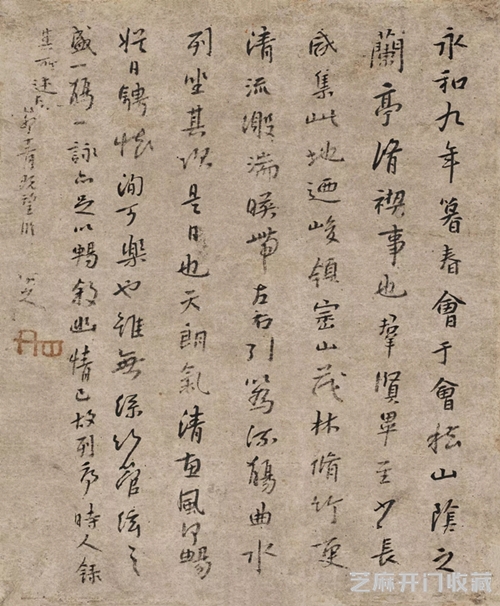 永和九年暮春會于會稽山陰之
蘭亭脩禊事也羣賢畢至少長
咸集此地迺峻領崇山茂林脩竹更
清流激湍暎帶左右引為流觴曲水
列坐其次是日也天朗氣清惠風和暢
娛目騁懷洵可樂也雖無絲竹管弦之
盛一觴一詠亦足以暢敘幽情已故列序時人錄
其所述
既望
芝麻开门收藏